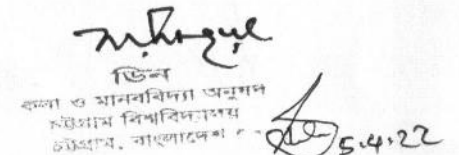 ডিন
কলা ও মানববিদ্যা অনুষদ
চট্টগ্রাম বিশ্ববিদ্যালয়
চট্টগ্রাম, বাংলাদেশ
5.4.22